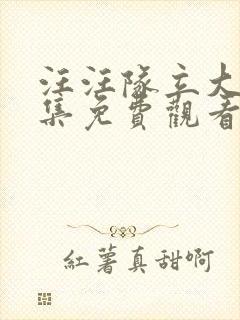 汪汪隊立大
集免費觀看
紅薯真甜啊